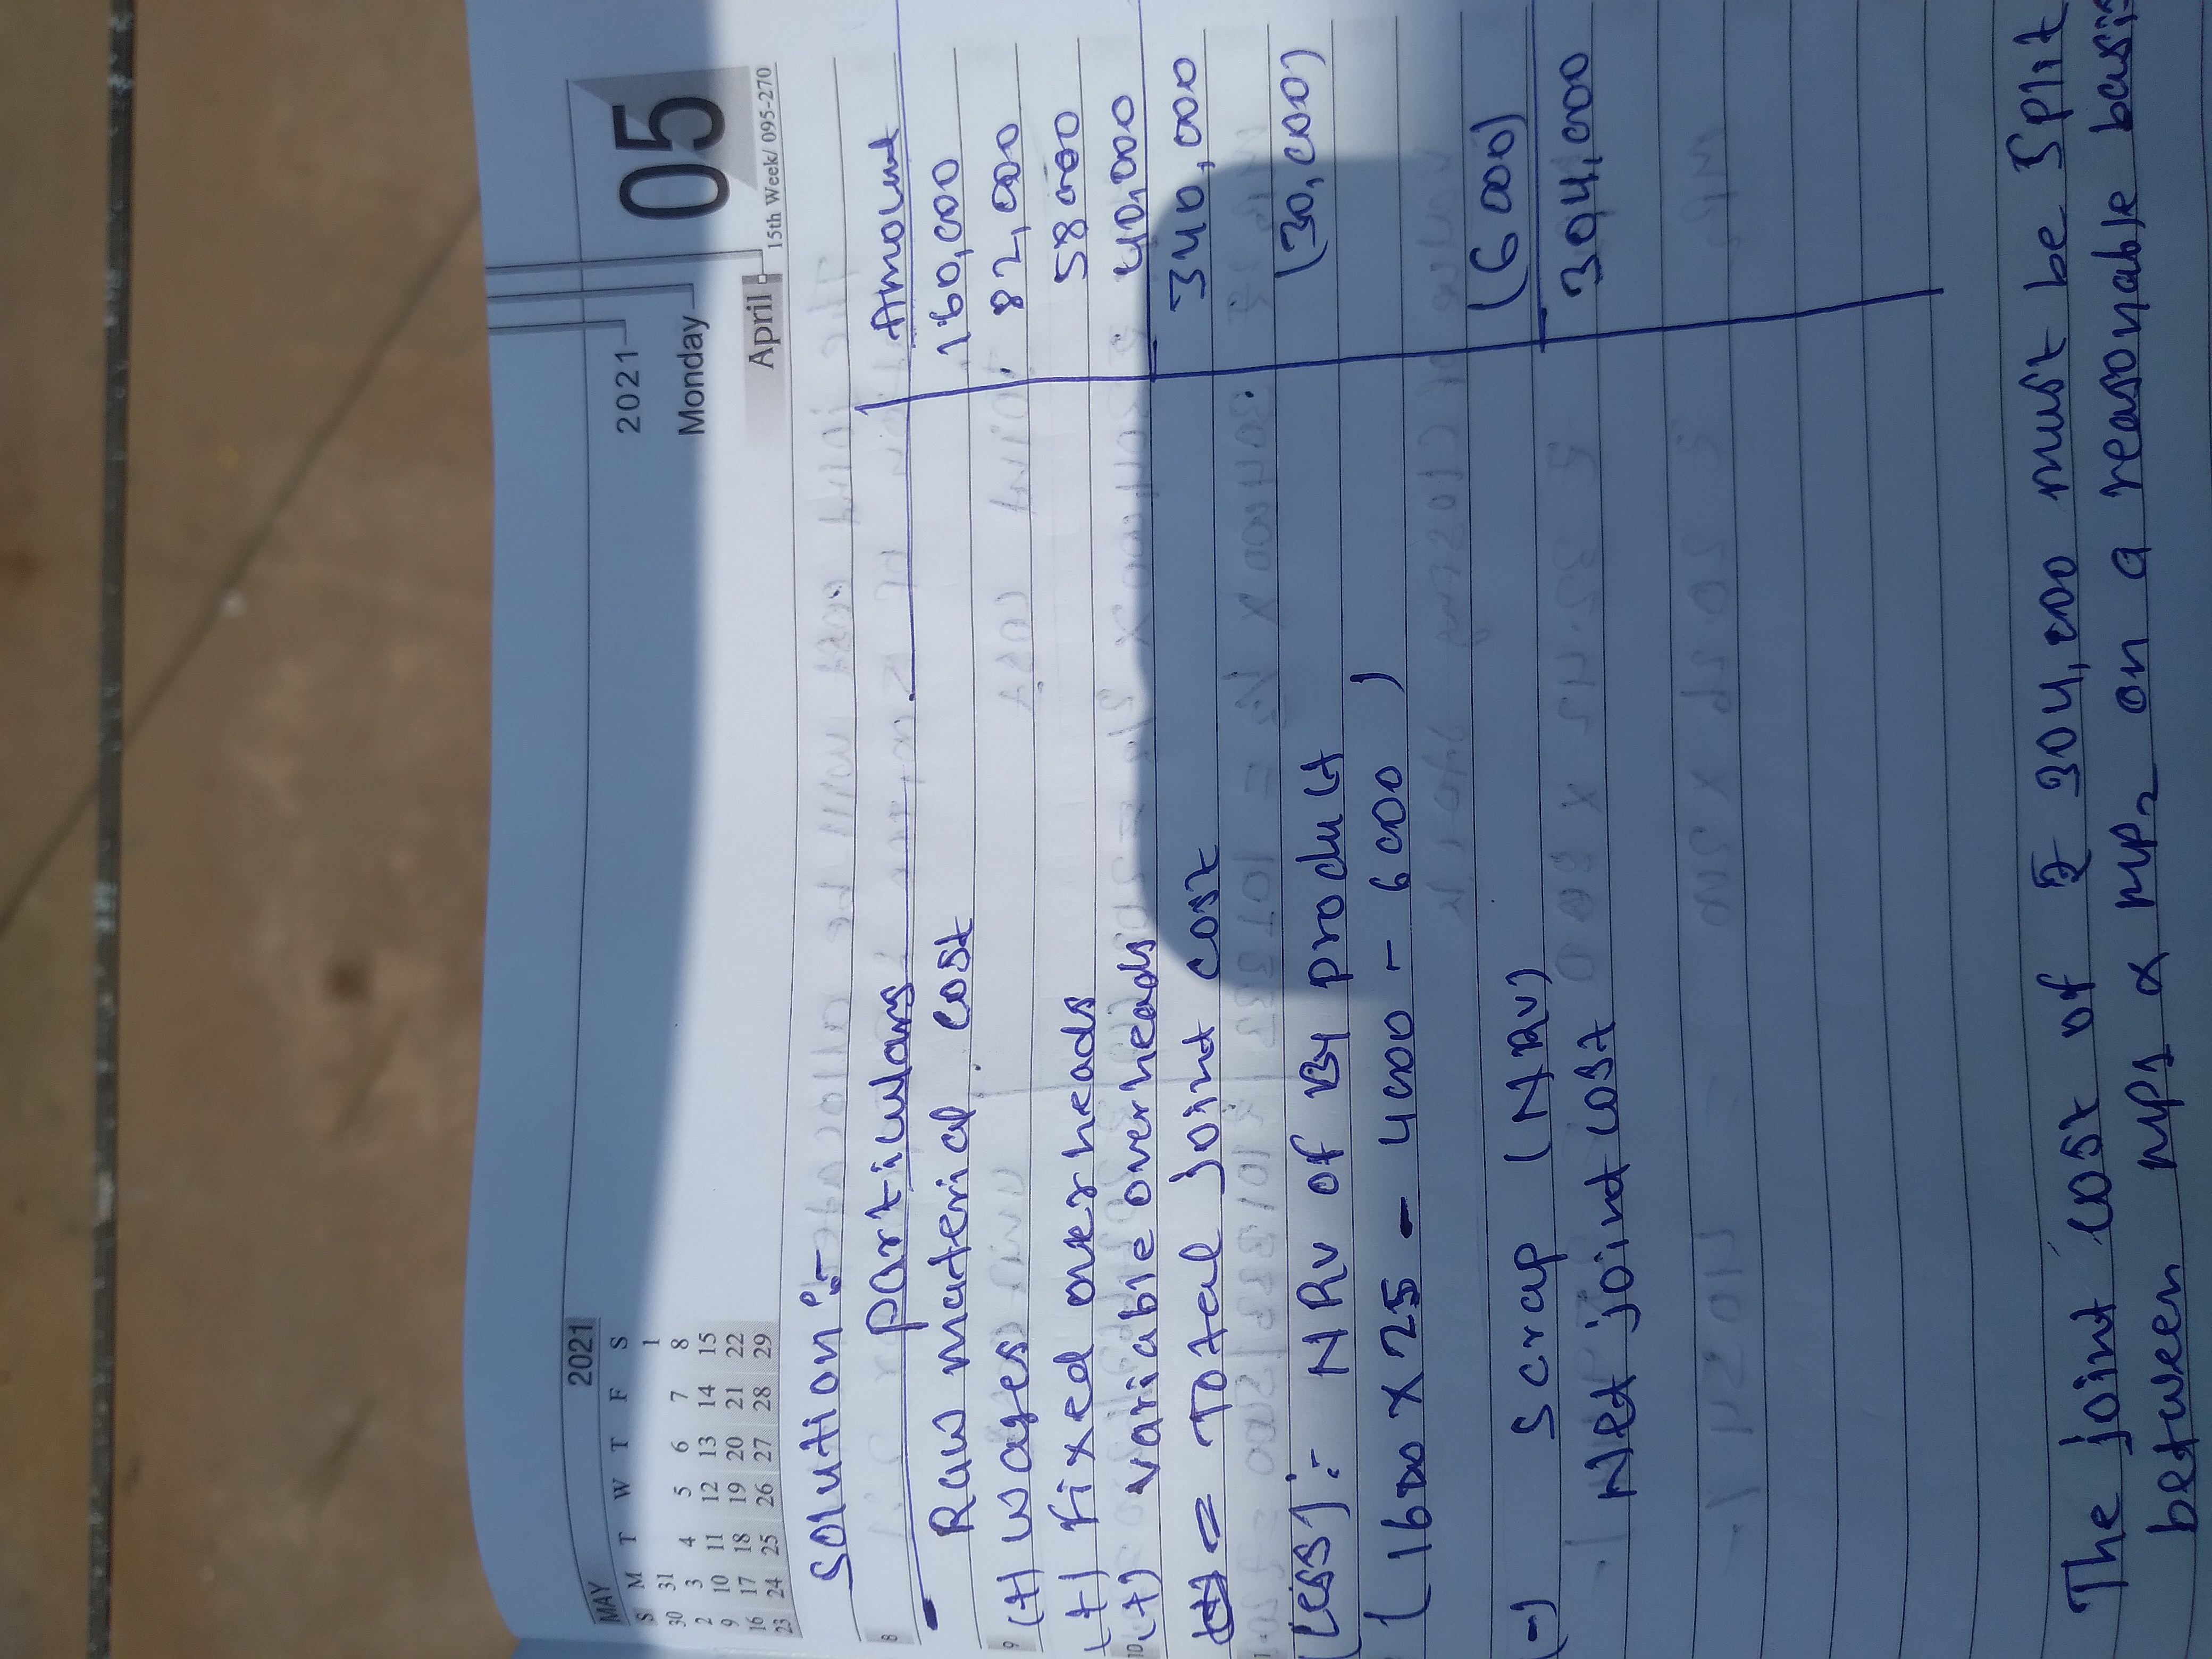 MAY 2021
S M T W T F S
30 31 1
2 3 4 5 6 7 8
9 10 11 12 13 14 15
16 17 18 19 20 21 22
23 24 25 26 27 28 29
2021
Monday
April
05
15th Week/ 095-270
Solution:-
8
particulars Amount
Raw material cost 160,000
9
(+) wages 82,000
(+) Fixed overheads 58000
10
(+) variable overheads 40,000
= Total joint cost 340,000
(Less):- NRV of By product (30,000)
(1600 X 25 - 4000 - 6000)
(-) Scrap (NRV) (6000)
Net joint cost 304,000
The joint cost of ₹ 304,000 must be split
between MP1 & MP2 on a reasonable basis